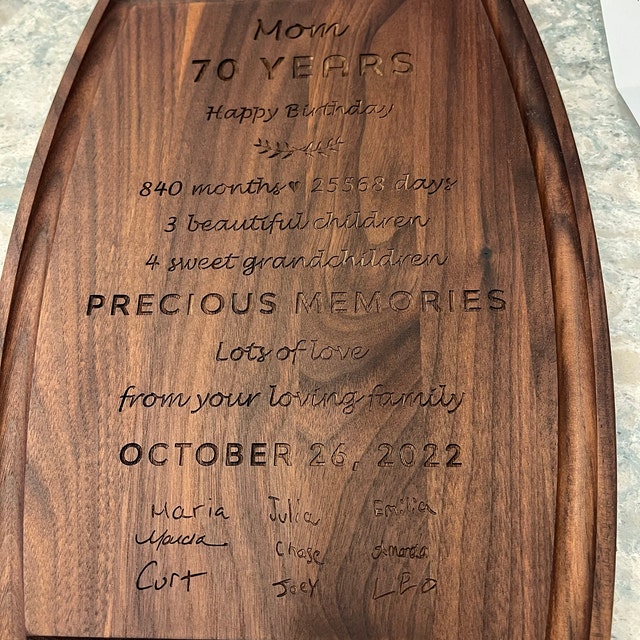 Mom
70 YEARS
Happy Birthday
840 months♥ 25568 days
3 beautiful children
4 sweet grandchildren
PRECIOUS MEMORIES
Lots of love
from your loving family
OCTOBER 26, 2022
Maria Julia Emilia
Chase Amanda
Curt Joey LEO